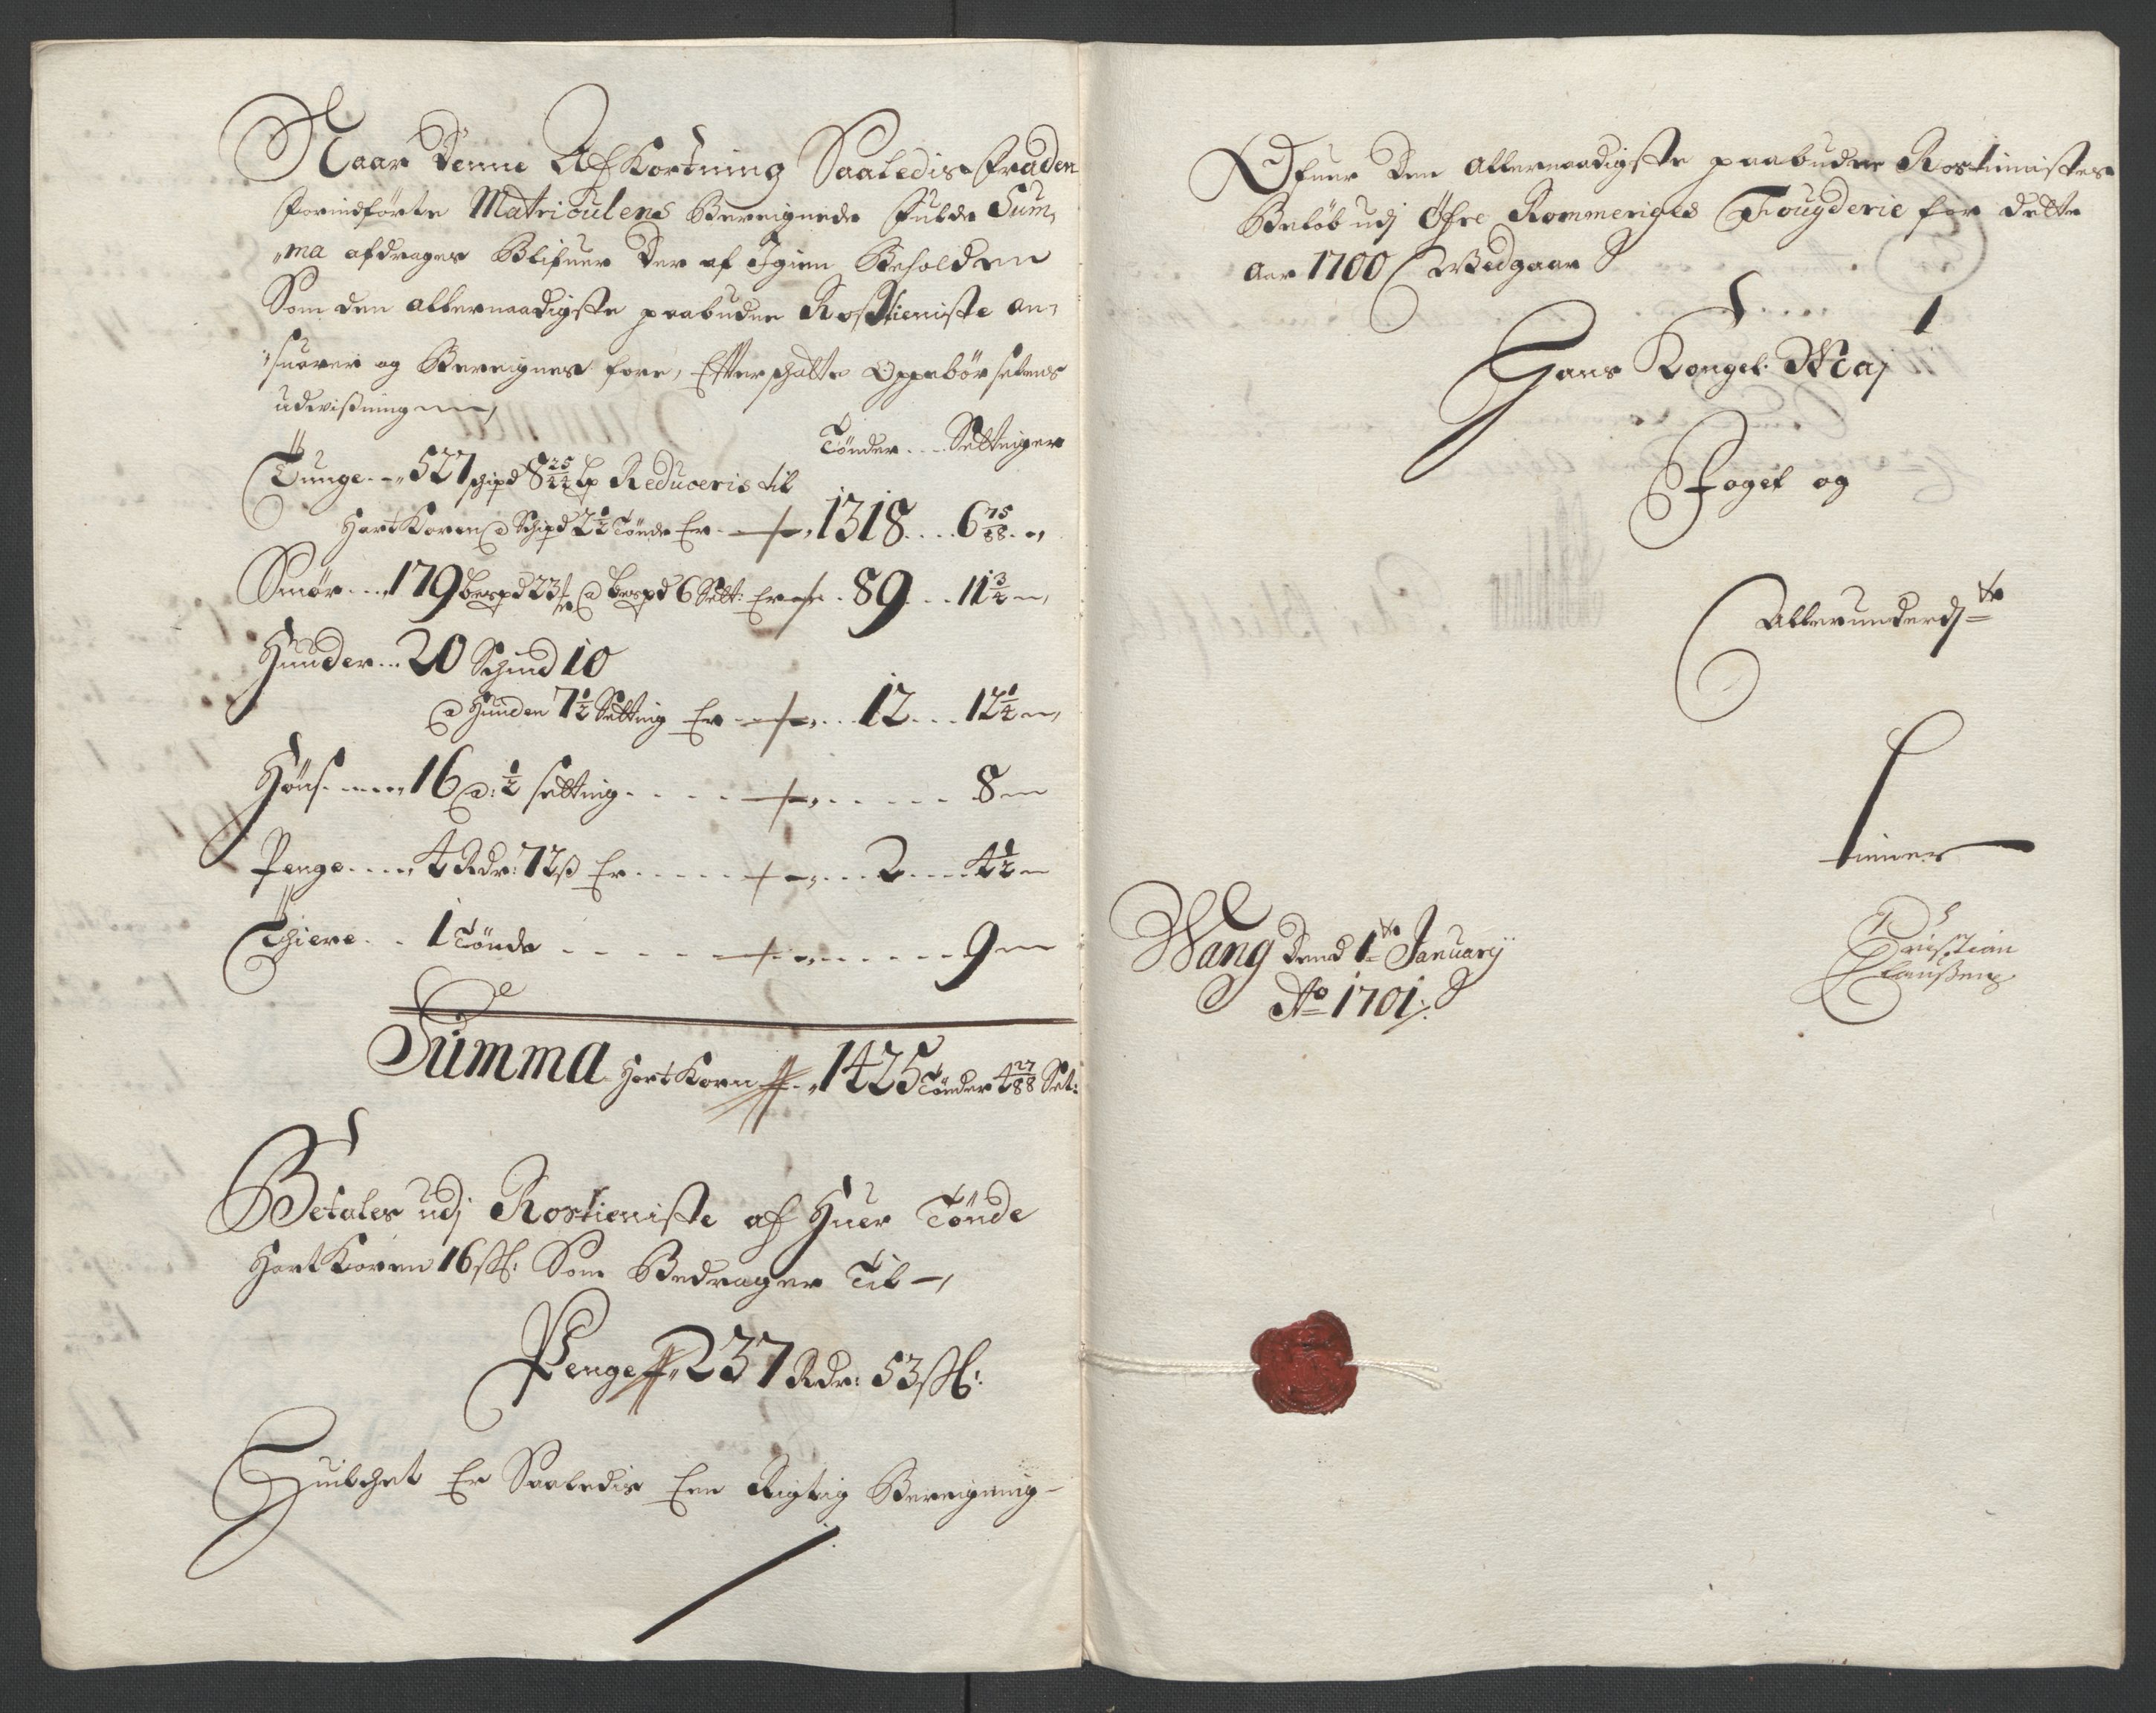 Naar denne Afkortning Saaledis fra den
forindförte Matriculens Bereignede fulde Sum,
„ma afdrages Blifuer der af Igien Beholden
Som den allernaadigste paabudne Rostieniste an,
„suarer og Bereignes fore, Effter schatte Oppebörselens
udvißningen,
Tönder... Settinger
Tunge. - „527 schipd 8 25/44 lp Reduceris til
Hart Koren @ Schipd 2 1/2 Tönde Er - „1318.... 6 75/88 „
Smör....179 bespd 23 @ bespd 6 Sett: Er . 89... 11 3/4 „
Hunder... 20 Schind 10
@ Hunden 7 1/2 Setting Er ... 12... 12 1/4 „
Höns.....16 @: 1/2 setting ...... 8 „
Penge.....4 Rdr: 72 ß Er ..... 2.... 4 1/2 „
Thiere.. 1 Tönde ...... 9 „
Summa Hart Korn „1425 Tönder 4 27/88 Set:
Betales udj Rostieniste af Huer Tönde
Hart Koren 16 ß: Som Bedrager Til,
Penge „237 Rdr: 53 ß:
Huilchet Er Saaledis Een Rigtig Bereigning
Ofuer den allernaadigste paabudne Rostienistes
Belöb udj Öfre Rommeriges Fougderie for dette
Aar 1700 Vedgaar
Hans Kongel: May
Foget og
Allerunderd. ste
tiener
Wang dend 1te January
Ao 1701.
Christian
Claußen